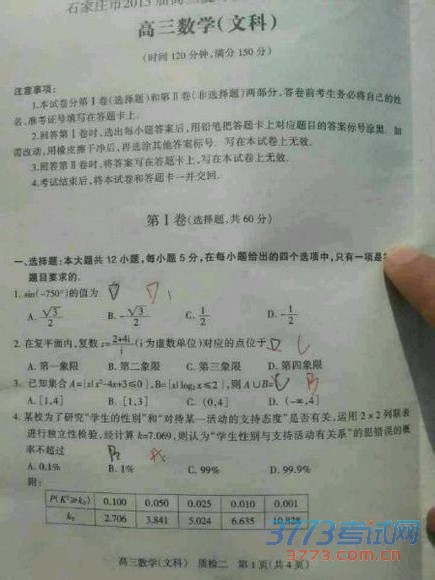 石家庄市2013届高三
高三数学(文科)
(时间120分钟,满分150分)
注意事项:
1.本试卷分第Ⅰ卷(选择题)和第Ⅱ卷(非选择题)两部分,答卷前考生务必将自己的姓
名,准考证号填写在答题卡上.
2.回答第Ⅰ卷时,选出每小题答案后,用铅笔把答题卡上对应题目的答案标号涂黑.如
需改动,用橡皮擦干净后,再选涂其他答案标号.写在本试卷上无效.
3.回答第Ⅱ卷时,将答案写在答题卡上,写在本试卷上无效.
4.考试结束后,将本试卷和答题卡一并交回.
第Ⅰ卷(选择题,共60分)
一、选择题:本大题共12小题,每小题5分,在每小题给出的四个选项中,只有一项是
题目要求的.
1. sin(-750°)的值为 D D
A. √3/2 B. -√3/2 C. 1/2 D. -1/2
2. 在复平面内,复数z=(2+4i)/i(i为虚数单位)对应的点位于 D C
A. 第一象限 B. 第二象限 C. 第三象限 D. 第四象限
3. 已知集合A={x|x²-4x+3≤0},B={x|log₂x≤2},则A∪B= C B
A. [1,4] B. [1,3] C. (0,4] D. (-∞,4]
4. 某校为了研究“学生的性别”和“对待某一活动的支持态度”是否有关,运用2×2列联表
进行独立性检验,经计算k=7.069,则认为“学生性别与支持活动有关系”的犯错误的概
率不超过 B A
A. 0.1% B. 1% C. 99% D. 99.9%
附:
P(K²≥k₀) 0.100 0.050 0.025 0.010 0.001
k₀ 2.706 3.841 5.024 6.635 10.828
3773考试网
3773.com.cn
高三数学(文科) 质检二 第1页(共4页)